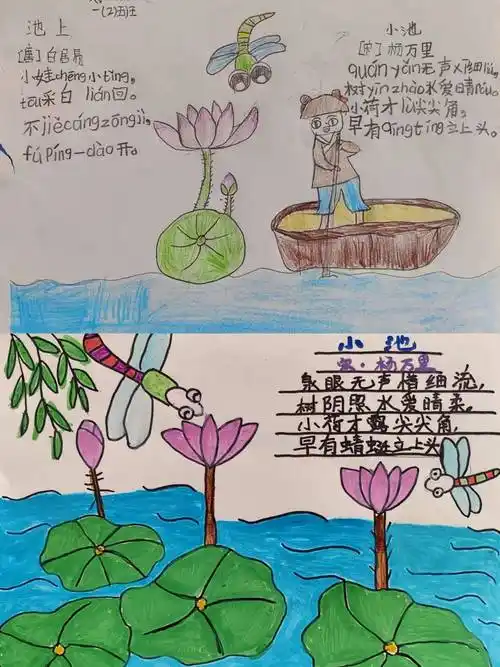 一(2)王
池上
[唐]白居易
小娃chēng小tǐng,
tōu采白 lián回。
不jiěcángzōngjì,
fúpíng一dào开。
小池
[宋]杨万里
quán yǎn无声 xī细liú,
树yīn zhào水爱晴róu。
小荷才lù尖尖角,
早有qīngtíng立上头。
小池
宋·杨万里
泉眼无声惜细流,
树阴照水爱晴柔。
小荷才露尖尖角,
早有蜻蜓立上头